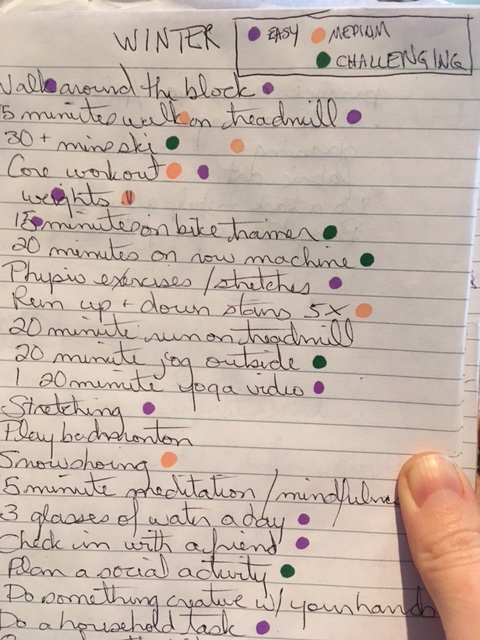 WINTER EASY MEDIUM
CHALLENGING
Walk around the block
5 minutes walk on treadmill
30 + mins ski
Core workout
weights
15 minutes on bike trainer
20 minutes on row machine
Physio exercises / stretches
Run up + down stairs 5x
20 minute run on treadmill
20 minute jog outside
1 20 minute yoga video
Stretching
Play badminton
Snowshoing
5 minute meditation / mindfulnes
3 glasses of water a day
Check in with a friend
Plan a social activity
Do something creative w/ your hands
Do a household task